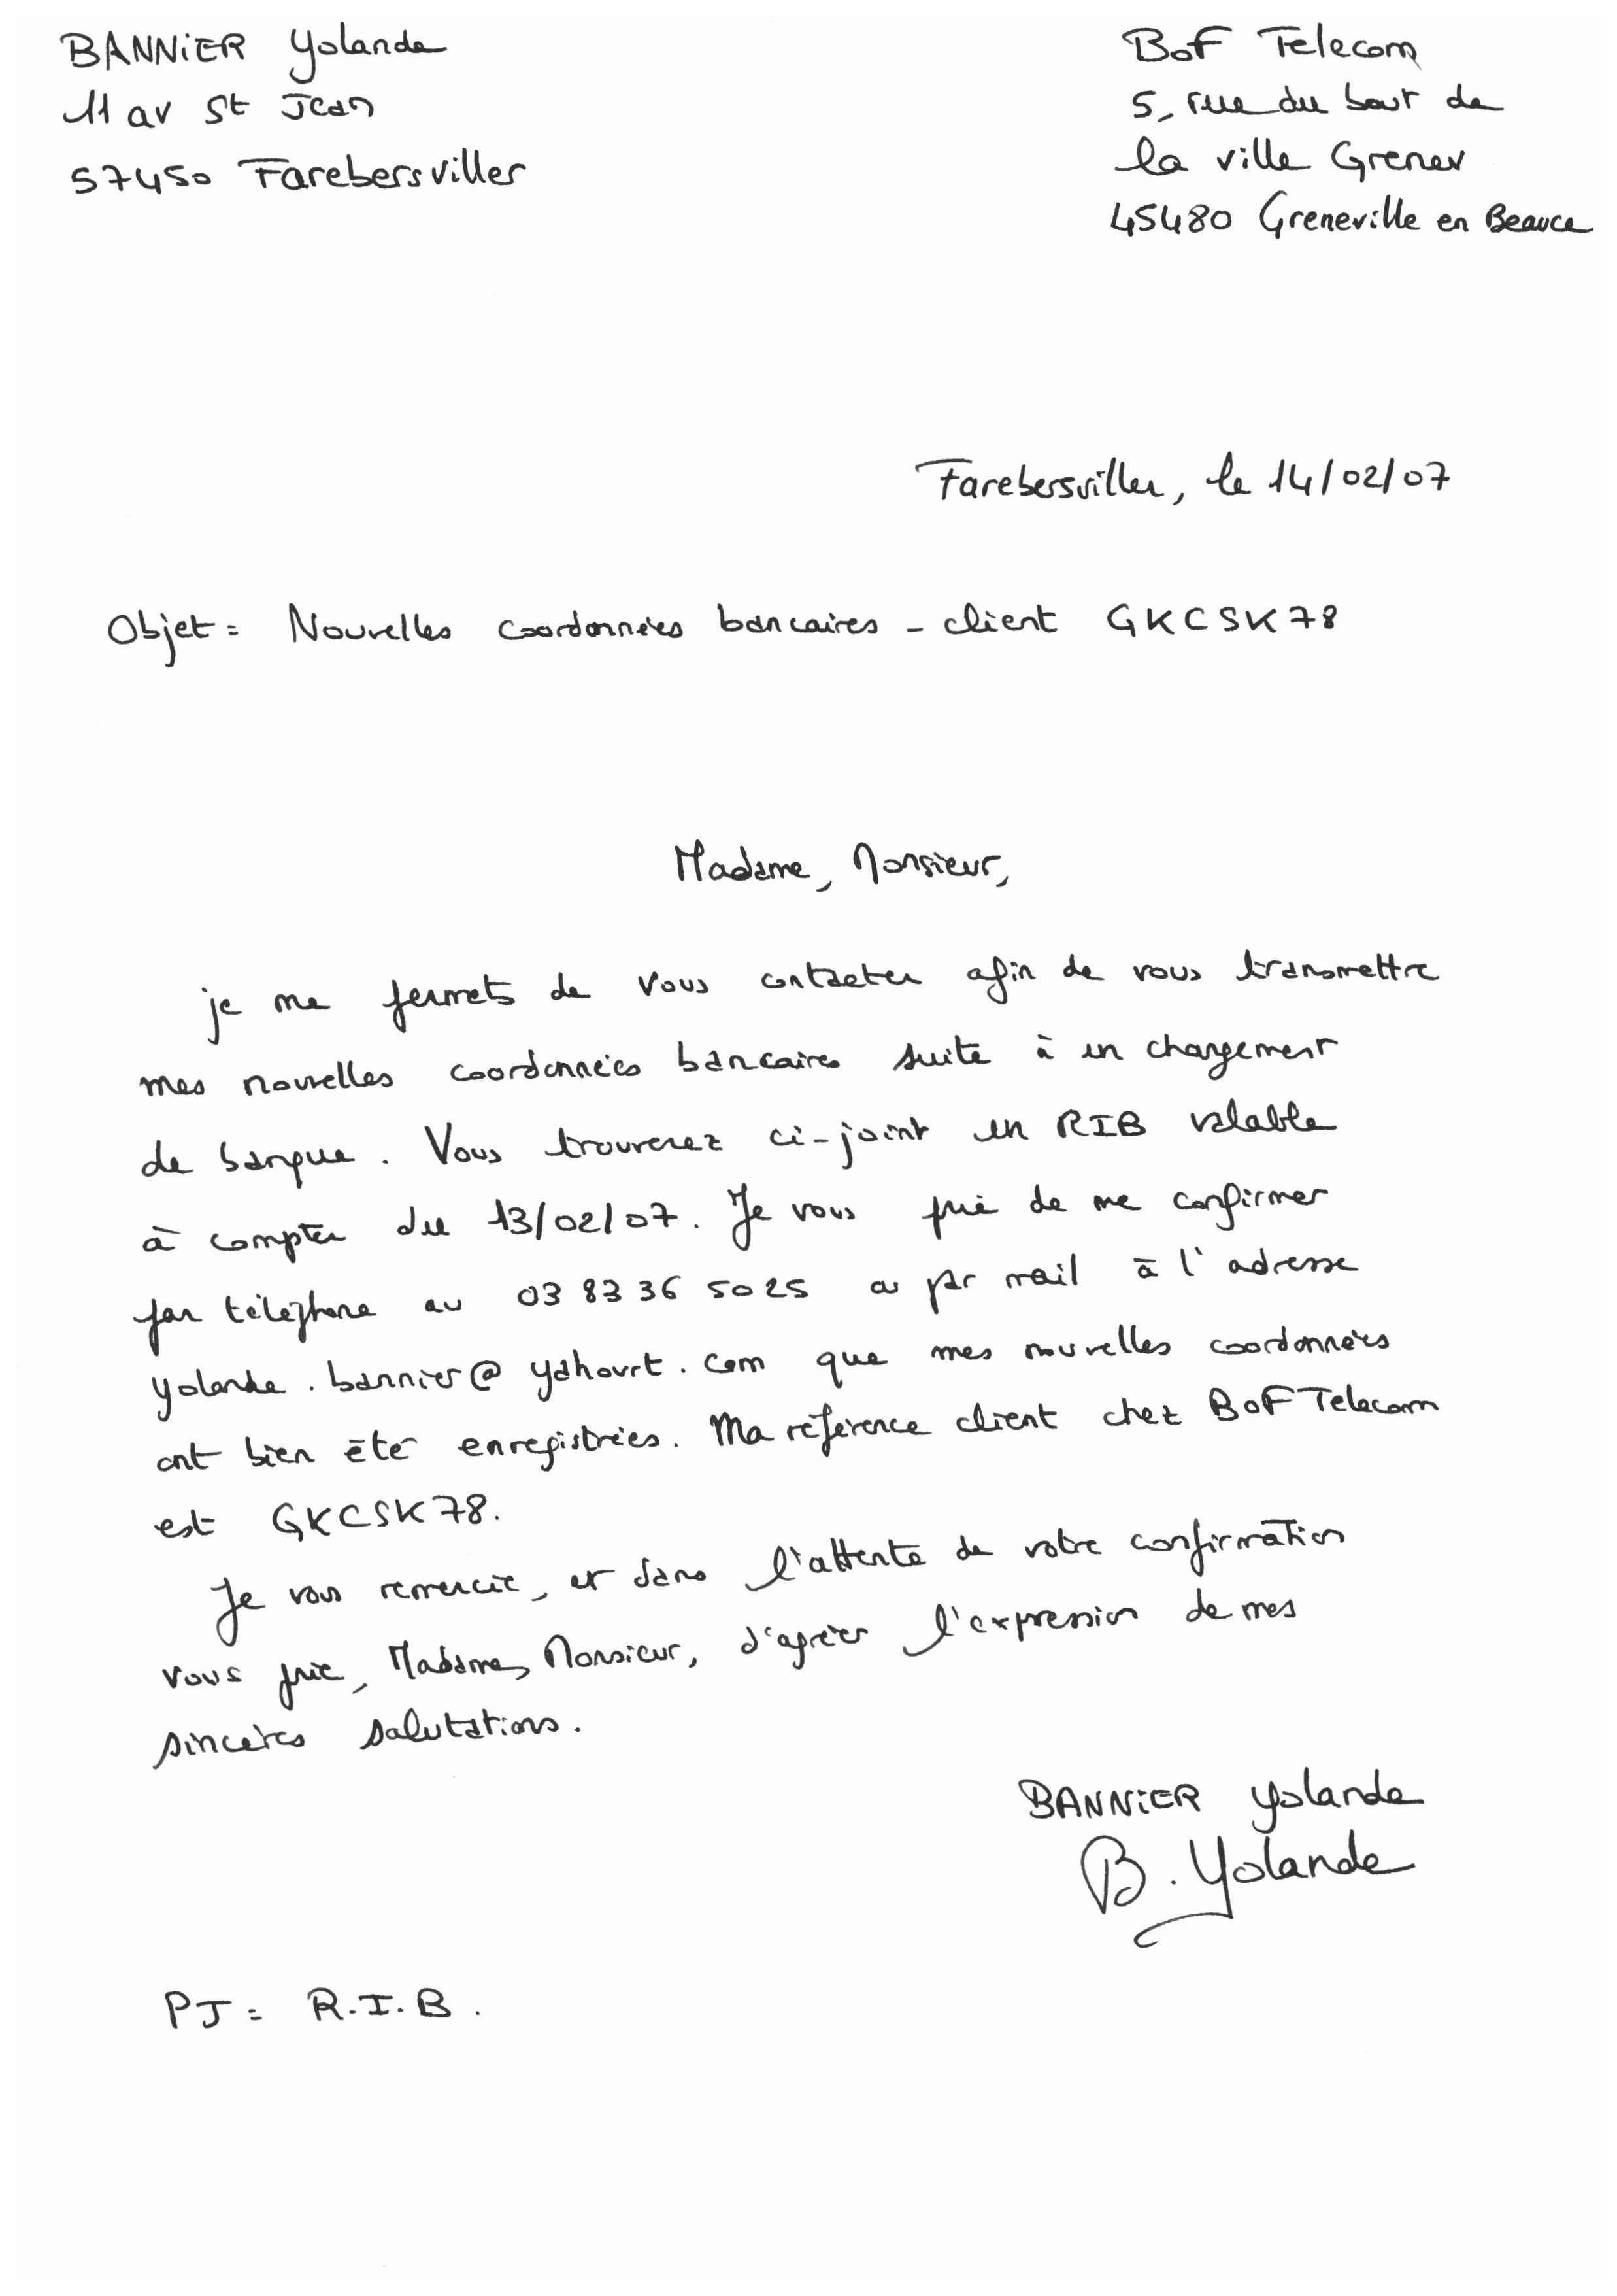 BANNIER Yolande
11 av St Jean
57450 Farebersviller
BoF Telecom
5, rue du bout de
la ville Grenev
45480 Greneville en Beauce
Farebersviller, le 14/02/07
Objet : Nouvelles coordonnées bancaires - client GKCSK78
Madame, Monsieur,
je me permets de vous contacter afin de vous transmettre
mes nouvelles coordonnées bancaires suite à un changement
de banque. Vous trouverez ci-joint un RIB valable
à compter du 13/02/07. Je vous prie de me confirmer
par téléphone au 03 83 36 50 25 ou par mail à l'adresse
yolande.bannier@yahourt.com que mes nouvelles coordonnées
ont bien été enregistrées. Ma référence client chez BoF Telecom
est GKCSK78.
Je vous remercie, et dans l'attente de votre confirmation
vous prie, Madame, Monsieur, d'agréer l'expression de mes
sincères salutations.
BANNIER Yolande
B. Yolande
PJ : R.I.B.